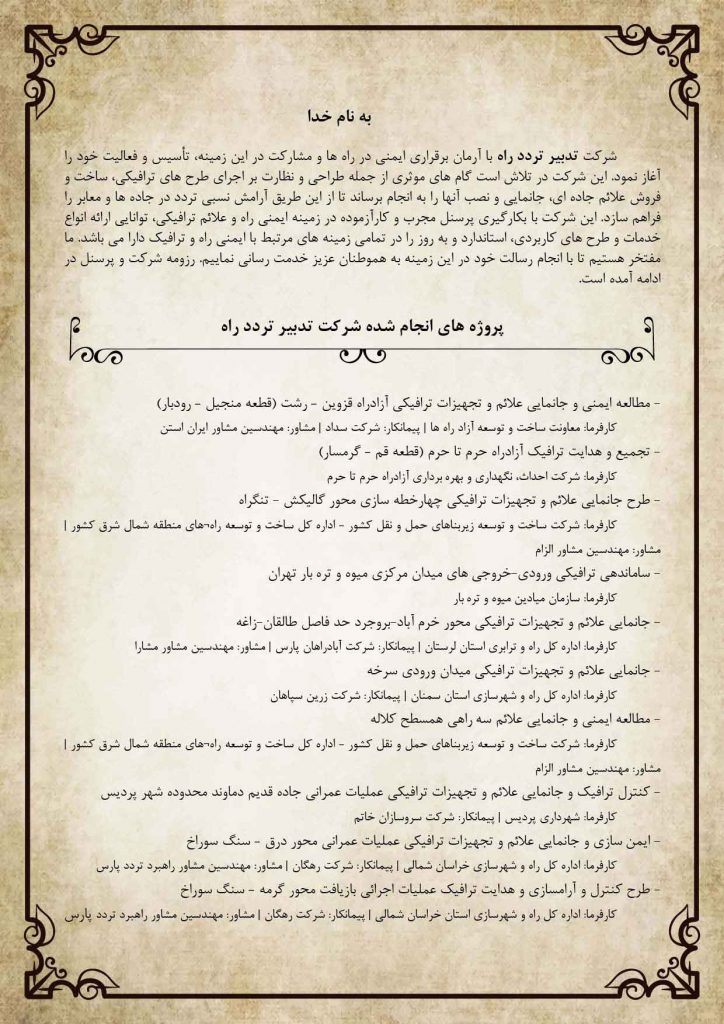 به نام خدا
شرکت تدبیر تردد راه با آرمان برقراری ایمنی در راه ها و مشارکت در این زمینه، تأسیس و فعالیت خود را
آغاز نمود. این شرکت در تلاش است گام های موثری از جمله طراحی و نظارت بر اجرای طرح های ترافیکی، ساخت و
فروش علائم جاده ای، جانمایی و نصب آنها را به انجام برساند تا از این طریق آرامش نسبی تردد در جاده ها و معابر را
فراهم سازد. این شرکت با بکارگیری پرسنل مجرب و کارآزموده در زمینه ایمنی راه و علائم ترافیکی، توانایی ارائه انواع
خدمات و طرح های کاربردی، استاندارد و به روز را در تمامی زمینه های مرتبط با ایمنی راه و ترافیک دارا می باشد. ما
مفتخر هستیم تا با انجام رسالت خود در این زمینه به هموطنان عزیز خدمت رسانی نماییم. رزومه شرکت و پرسنل در
ادامه آمده است.
پروژه های انجام شده شرکت تدبیر تردد راه
- مطالعه ایمنی و جانمایی علائم و تجهیزات ترافیکی آزادراه قزوین - رشت (قطعه منجیل - رودبار)
کارفرما: معاونت ساخت و توسعه آزاد راه ها | پیمانکار: شرکت سداد | مشاور: مهندسین مشاور ایران استن
- تجمیع و هدایت ترافیک آزادراه حرم تا حرم (قطعه قم - گرمسار)
کارفرما: شرکت احداث، نگهداری و بهره برداری آزادراه حرم تا حرم
- طرح جانمایی علائم و تجهیزات ترافیکی چهارخطه سازی محور گالیکش - تنگراه
کارفرما: شرکت ساخت و توسعه زیربناهای حمل و نقل کشور - اداره کل ساخت و توسعه راه¬های منطقه شمال شرق کشور |
مشاور: مهندسین مشاور الزام
- ساماندهی ترافیکی ورودی-خروجی های میدان مرکزی میوه و تره بار تهران
کارفرما: سازمان میادین میوه و تره بار
- جانمایی علائم و تجهیزات ترافیکی محور خرم آباد-بروجرد حد فاصل طالقان-زاغه
کارفرما: اداره کل راه و ترابری استان لرستان | پیمانکار: شرکت آبادراهان پارس | مشاور: مهندسین مشاور مشارا
- جانمایی علائم و تجهیزات ترافیکی میدان ورودی سرخه
کارفرما: اداره کل راه و شهرسازی استان سمنان | پیمانکار: شرکت زرین سپاهان
- مطالعه ایمنی و جانمایی علائم سه راهی همسطح کلاله
کارفرما: شرکت ساخت و توسعه زیربناهای حمل و نقل کشور - اداره کل ساخت و توسعه راه¬های منطقه شمال شرق کشور |
مشاور: مهندسین مشاور الزام
- کنترل ترافیک و جانمایی علائم و تجهیزات ترافیکی عملیات عمرانی جاده قدیم دماوند محدوده شهر پردیس
کارفرما: شهرداری پردیس | پیمانکار: شرکت سروسازان خاتم
- ایمن سازی و جانمایی علائم و تجهیزات ترافیکی عملیات عمرانی محور درق - سنگ سوراخ
کارفرما: اداره کل راه و شهرسازی خراسان شمالی | پیمانکار: شرکت رهگان | مشاور: مهندسین مشاور راهبرد تردد پارس
- طرح کنترل و آرامسازی و هدایت ترافیک عملیات اجرائی بازیافت محور گرمه - سنگ سوراخ
کارفرما: اداره کل راه و شهرسازی استان خراسان شمالی | پیمانکار: شرکت رهگان | مشاور: مهندسین مشاور راهبرد تردد پارس